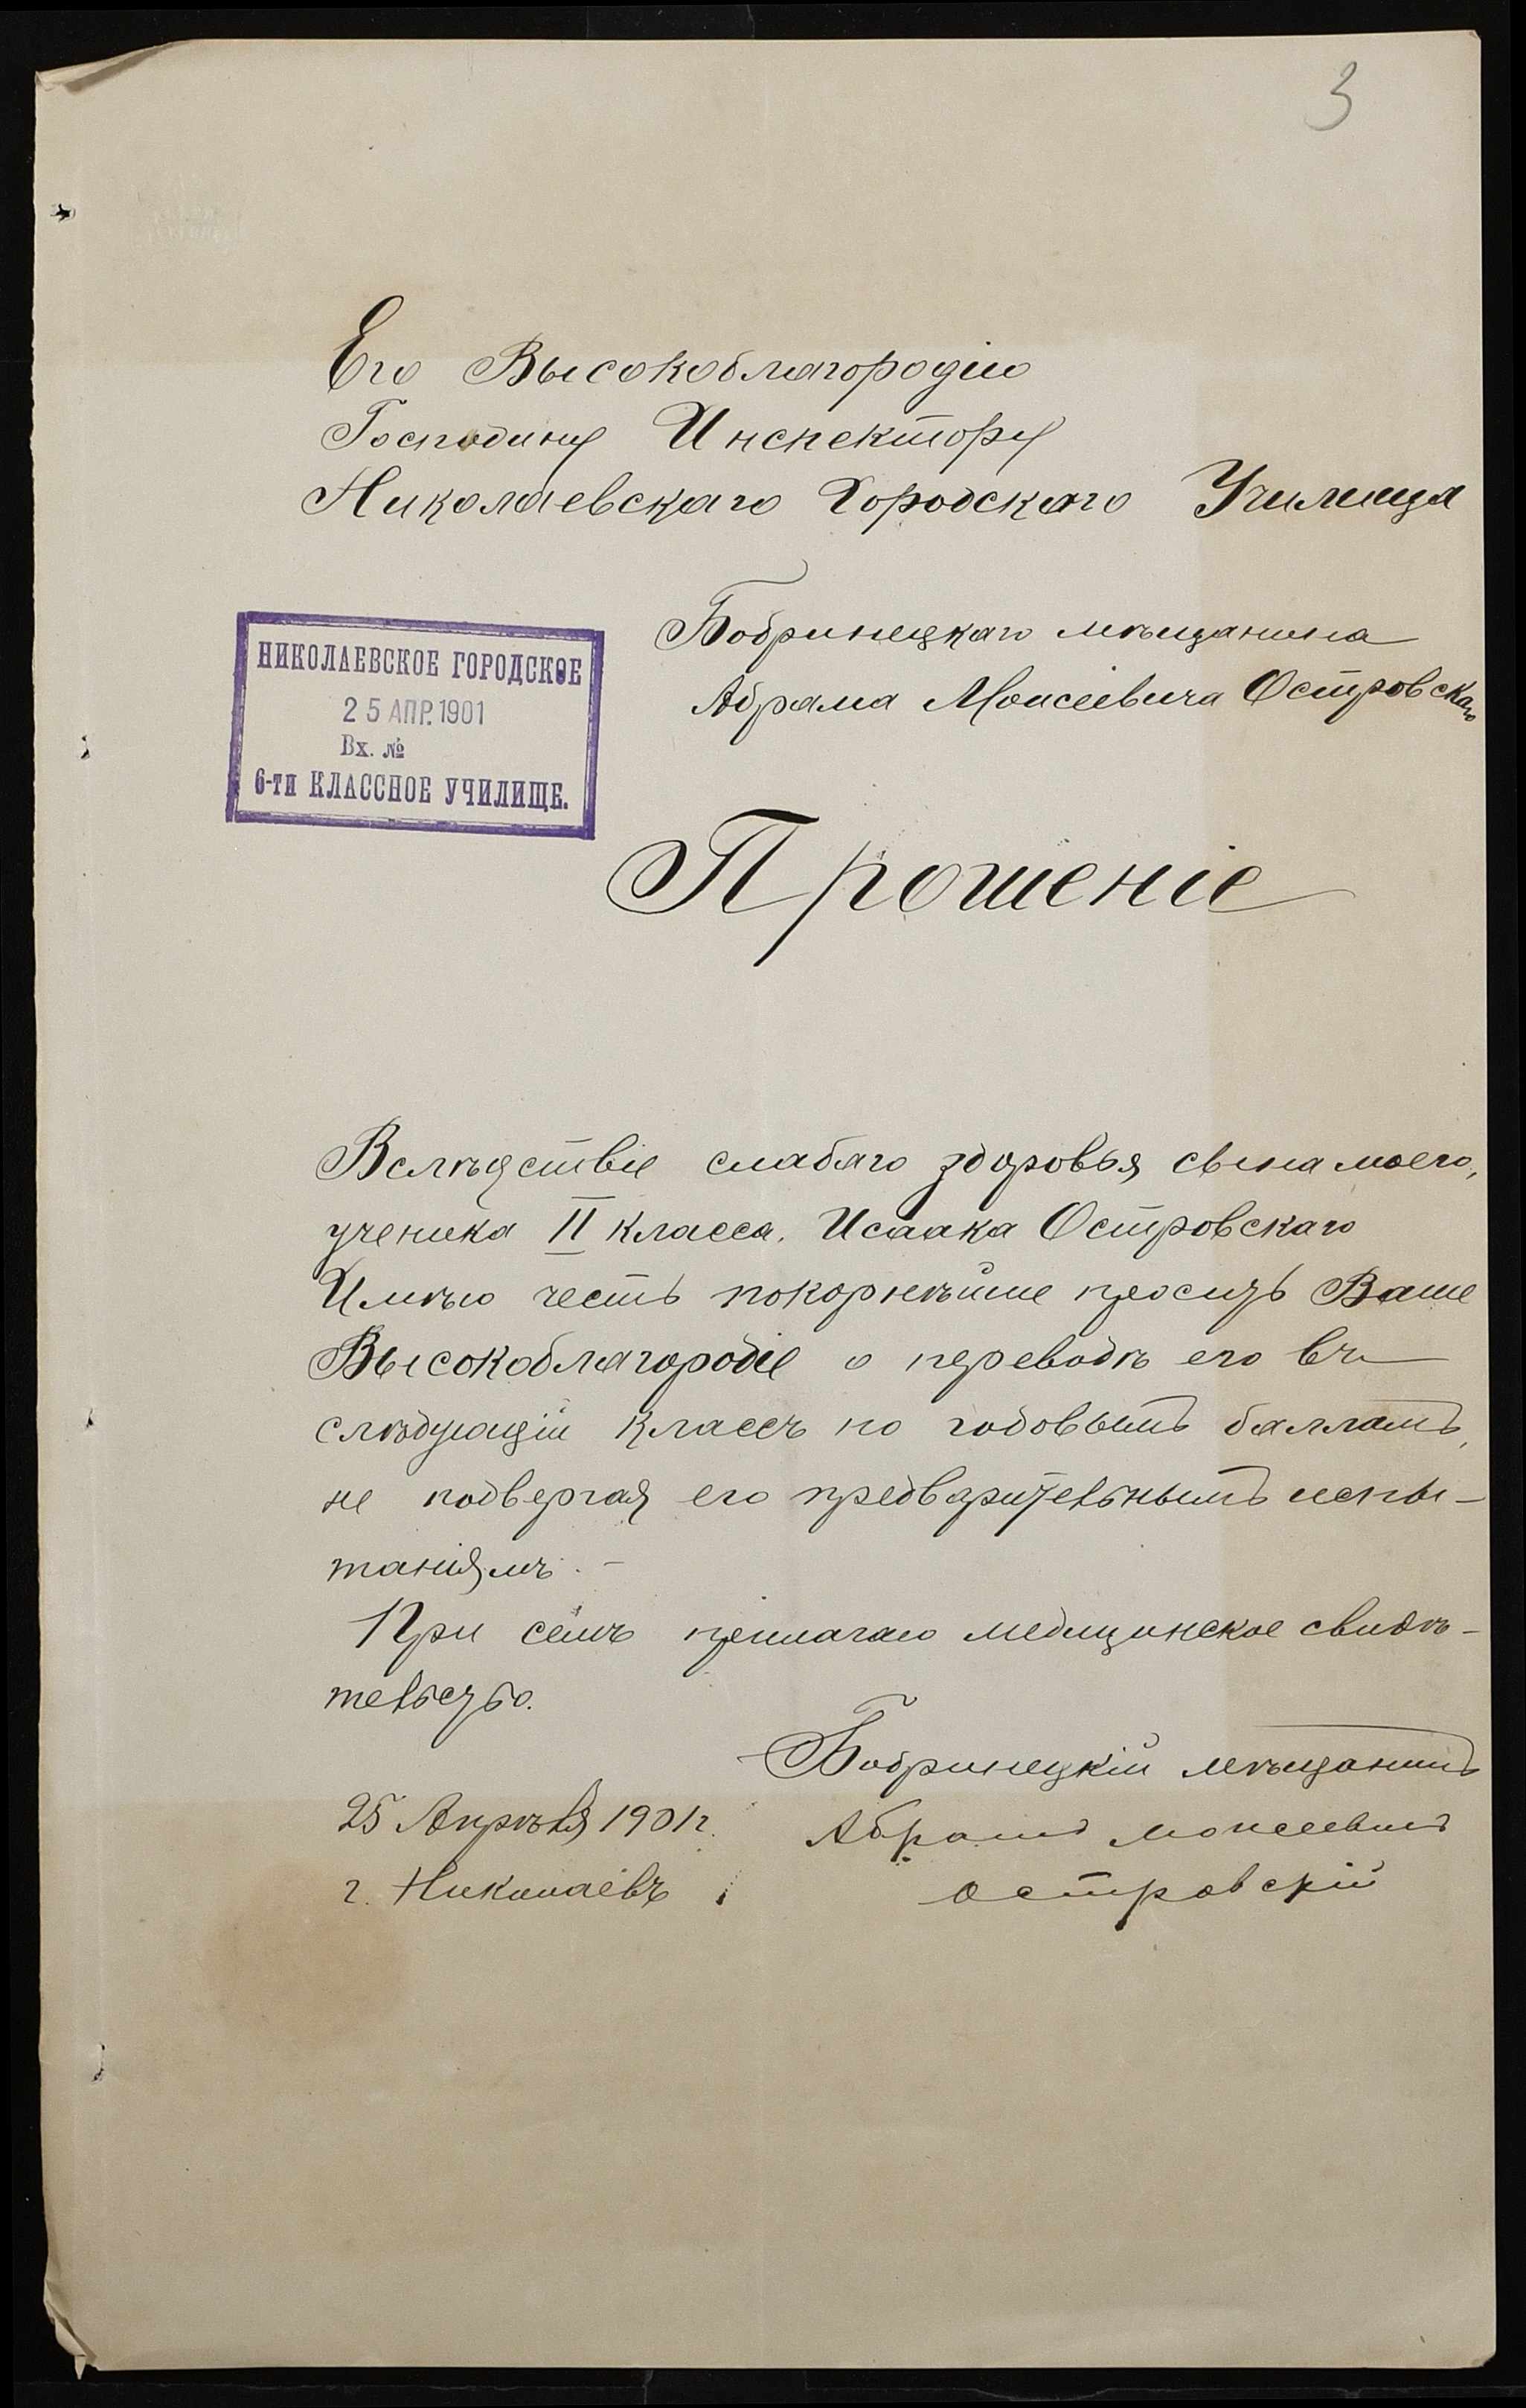 3
Его Высокоблагородію
Господину Инспектору
Николаевскаго Городского Училища
Бобринецкаго мѣщанина
Абрама Моисеевича Островскаго
НИКОЛАЕВСКОЕ ГОРОДСКОЕ
25 АПР. 1901
Вх. №
6-ти КЛАССНОЕ УЧИЛИЩЕ.
Прошеніе
Вслѣдствіе слабаго здоровья сына моего,
ученика II класса, Исаака Островскаго
Имѣю честь покорнѣйше просить Ваше
Высокоблагородіе о переводѣ его въ
слѣдующій классъ по годовымъ балламъ,
не подвергая его предварительнымъ испы-
таніямъ. -
При семъ прилагаю медицинское свидѣ-
тельство.
Бобринецкій мѣщанинъ
25 Апрѣля 1901 г.
Абрамъ Моисеевичъ
г. Николаевъ
Островскій